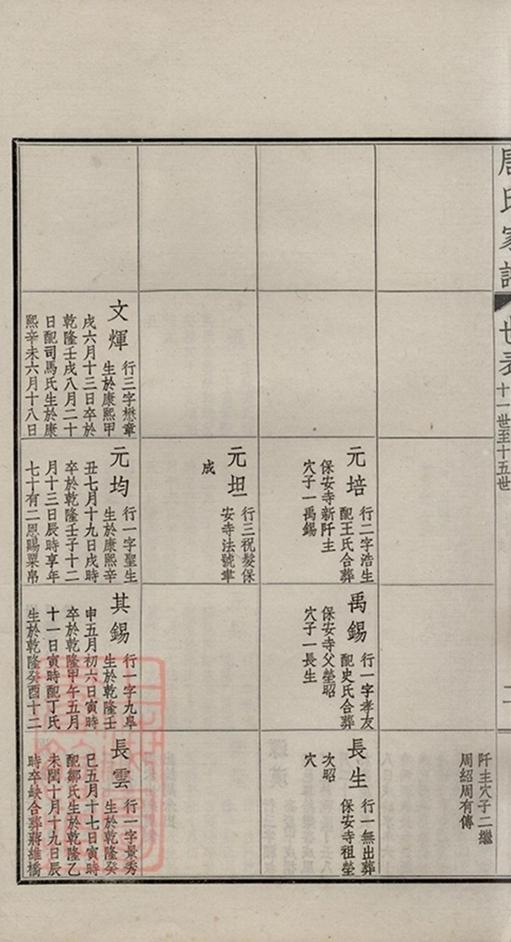 周氏家譜
世表
十一世至十五世
阡主穴子二繼
周紹周有傳
元培
行二字浩生
配王氏合葬
保安寺新阡主
穴子一禹錫
禹錫
行一字孝友
配史氏合葬
保安寺父塋昭
穴子一長生
長生
行一無出葬
保安寺祖塋
次昭
穴
元坦
行三祝髮保
安寺法號聿
成
文煇
行三字懋章
生於康熙甲
戌六月十三日卒於
乾隆壬戌八月二十
日配司馬氏生於康
熙辛未六月十八日
元均
行一字聖生
生於康熙辛
丑七月十九日戌時
卒於乾隆壬子十二
月十三日辰時享年
七十有二恩賜粟帛
其錫
行一字九皐
生於乾隆壬
申五月初六日寅時
卒於乾隆甲午五月
十一日寅時配丁氏
生於乾隆癸酉十二
長雲
行一字景秀
生於乾隆癸
巳五月十七日寅時
配鄒氏生於乾隆乙
未閏十月十九日辰
時卒缺合葬蔣雄橋